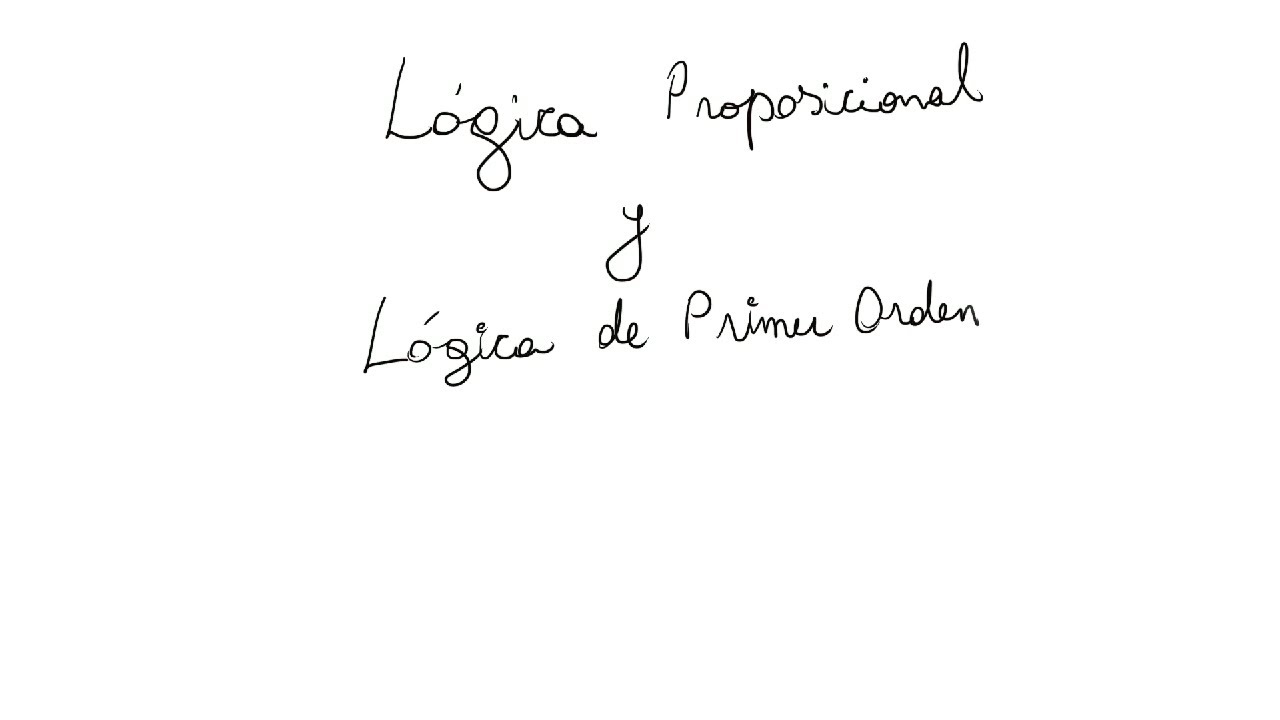 Lógica Proposicional
y
Lógica de Primer Orden